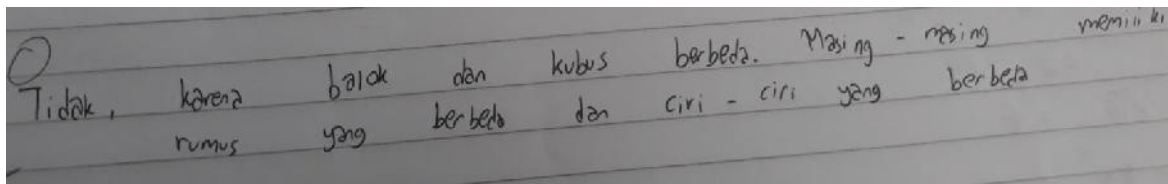 Tidak, karena balok dan kubus berbeda. Masing - masing memiliki
rumus yang berbeda dan ciri - ciri yang berbeda